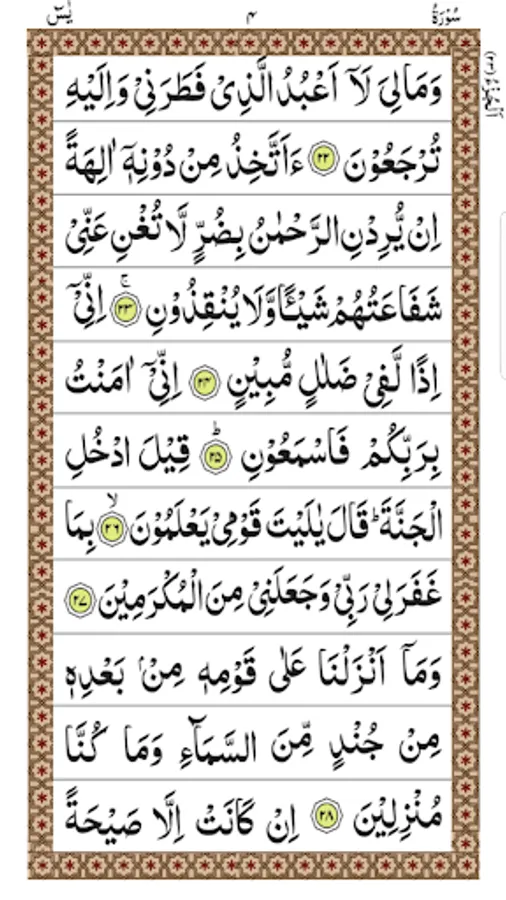 سُوْرَةُ ۴ يٰسٓ
اَلْجُزْءُ (۲۳)
وَمَالِىَ لَآ اَعْبُدُ الَّذِىْ فَطَرَنِىْ وَاِلَيْهِ
تُرْجَعُوْنَ ۲۲ ءَاَتَّخِذُ مِنْ دُوْنِهٖٓ اٰلِهَةً
اِنْ يُّرِدْنِ الرَّحْمٰنُ بِضُرٍّ لَّا تُغْنِ عَنِّىْ
شَفَاعَتُهُمْ شَيْــًٔا وَّلَا يُنْقِذُوْنِ ۚ ۲۳ اِنِّىْٓ
اِذًا لَّفِىْ ضَلٰلٍ مُّبِيْنٍ ۲۴ اِنِّىْٓ اٰمَنْتُ
بِرَبِّكُمْ فَاسْمَعُوْنِ ؕ ۲۵ قِيْلَ ادْخُلِ
الْجَنَّةَ ؕ قَالَ يٰلَيْتَ قَوْمِىْ يَعْلَمُوْنَ ۙ ۲۶ بِمَا
غَفَرَلِىْ رَبِّىْ وَجَعَلَنِىْ مِنَ الْمُكْرَمِيْنَ ۲۷
وَمَآ اَنْزَلْنَا عَلٰى قَوْمِهٖ مِنْۢ بَعْدِهٖ
مِنْ جُنْدٍ مِّنَ السَّمَآءِ وَمَا كُنَّا
مُنْزِلِيْنَ ۲۸ اِنْ كَانَتْ اِلَّا صَيْحَةً